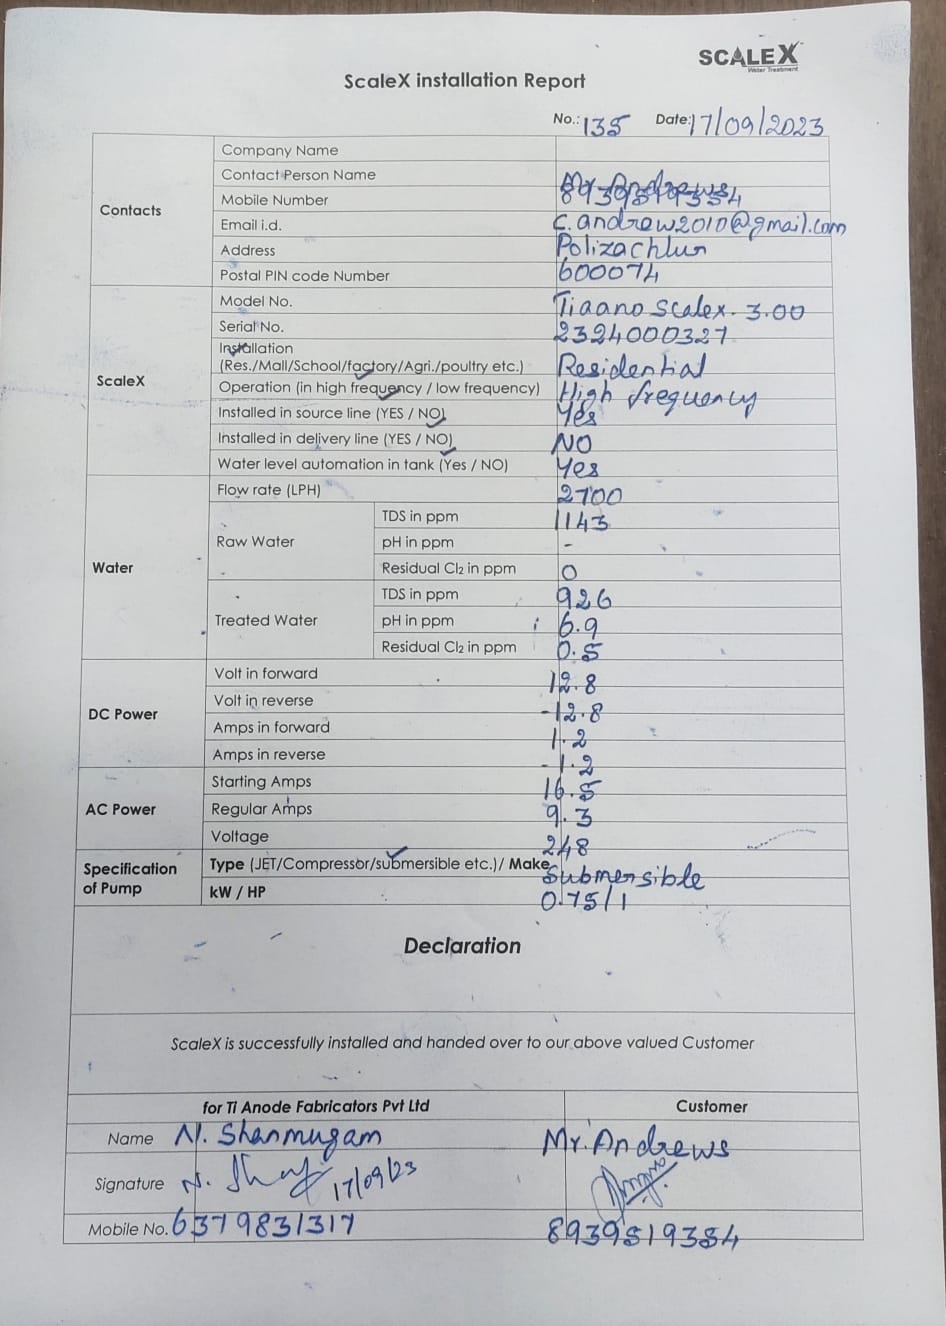 SCALEX
Water Treatment
ScaleX installation Report
No.: 135 Date: 17/09/2023
Contacts
Company Name
Contact Person Name Mr. Andrews
Mobile Number
Email i.d. c.andrew2010@gmail.com
Address Polizachlur
Postal PIN code Number 600074
ScaleX
Model No. Tiaano Scalex. 3.00
Serial No. 2324000327
Installation
(Res./Mall/School/factory/Agri./poultry etc.) Residential
Operation (in high frequency / low frequency) High frequency
Installed in source line (YES / NO) Yes
Installed in delivery line (YES / NO) NO
Water level automation in tank (Yes / NO) Yes
Water
Flow rate (LPH) 2700
Raw Water
TDS in ppm 1143
pH in ppm -
Residual Cl2 in ppm 0
Treated Water
TDS in ppm 926
pH in ppm 6.9
Residual Cl2 in ppm 0.5
DC Power
Volt in forward 12.8
Volt in reverse -12.8
Amps in forward 1.2
Amps in reverse -1.2
AC Power
Starting Amps 16.5
Regular Amps 9.3
Voltage 248
Specification
of Pump
Type (JET/Compressor/submersible etc.)/ Make Submersible
kW / HP 0.75/1
Declaration
ScaleX is successfully installed and handed over to our above valued Customer
for Ti Anode Fabricators Pvt Ltd Customer
Name N. Shanmugam Mr. Andrews
Signature 17/09/23
Mobile No. 6379831317